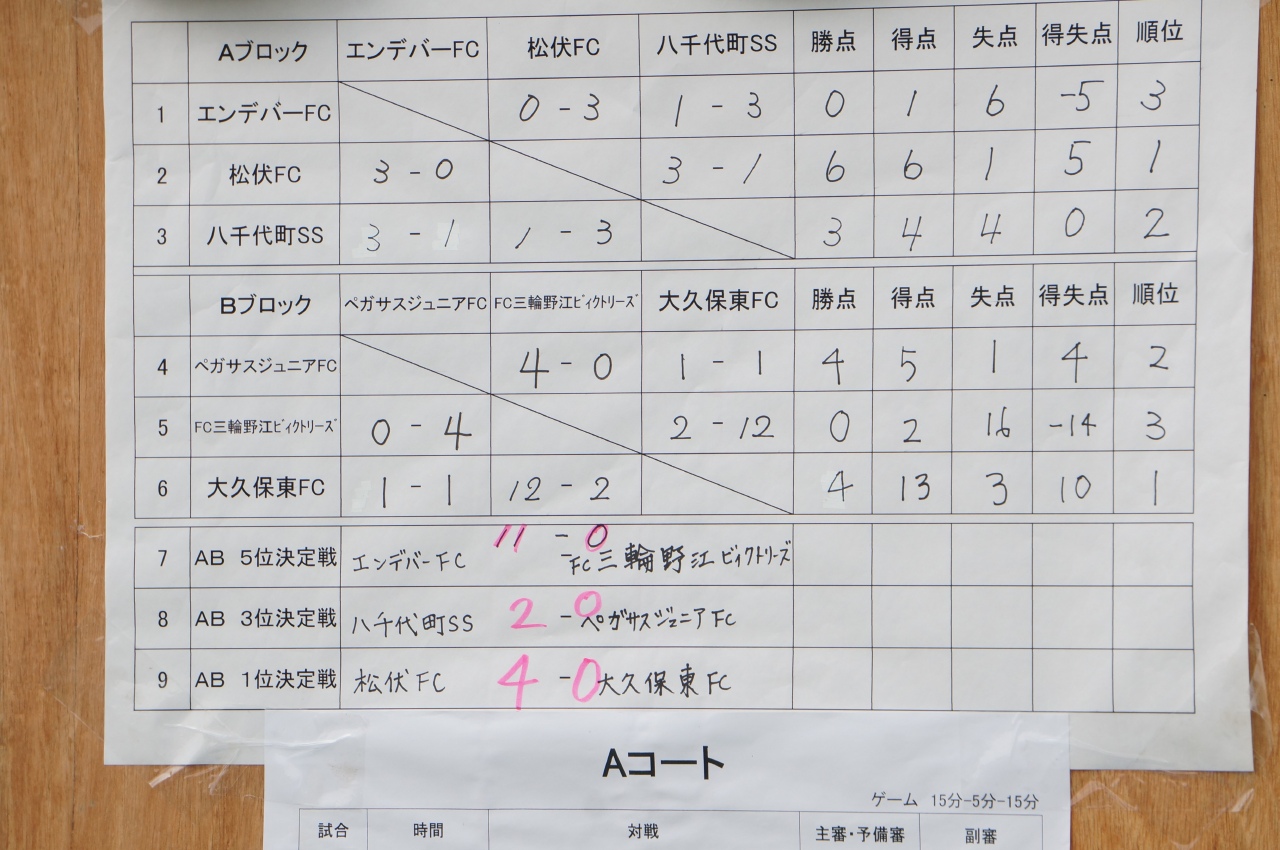 Aブロック エンデバーFC 松伏FC 八千代町SS 勝点 得点 失点 得失点 順位
1 エンデバーFC 0 - 3 1 - 3 0 1 6 -5 3
2 松伏FC 3 - 0 3 - 1 6 6 1 5 1
3 八千代町SS 3 - 1 1 - 3 3 4 4 0 2
Bブロック ペガサスジュニアFC FC三輪野江ビィクトリーズ 大久保東FC 勝点 得点 失点 得失点 順位
4 ペガサスジュニアFC 4 - 0 1 - 1 4 5 1 4 2
5 FC三輪野江ビィクトリーズ 0 - 4 2 - 12 0 2 16 -14 3
6 大久保東FC 1 - 1 12 - 2 4 13 3 10 1
7 AB 5位決定戦 エンデバーFC 11 - 0 FC三輪野江ビィクトリーズ
8 AB 3位決定戦 八千代町SS 2 - 0 ペガサスジュニアFC
9 AB 1位決定戦 松伏FC 4 - 0 大久保東FC
Aコート
ゲーム 15分-5分-15分
試合 時間 対戦 主審・予備審 副審